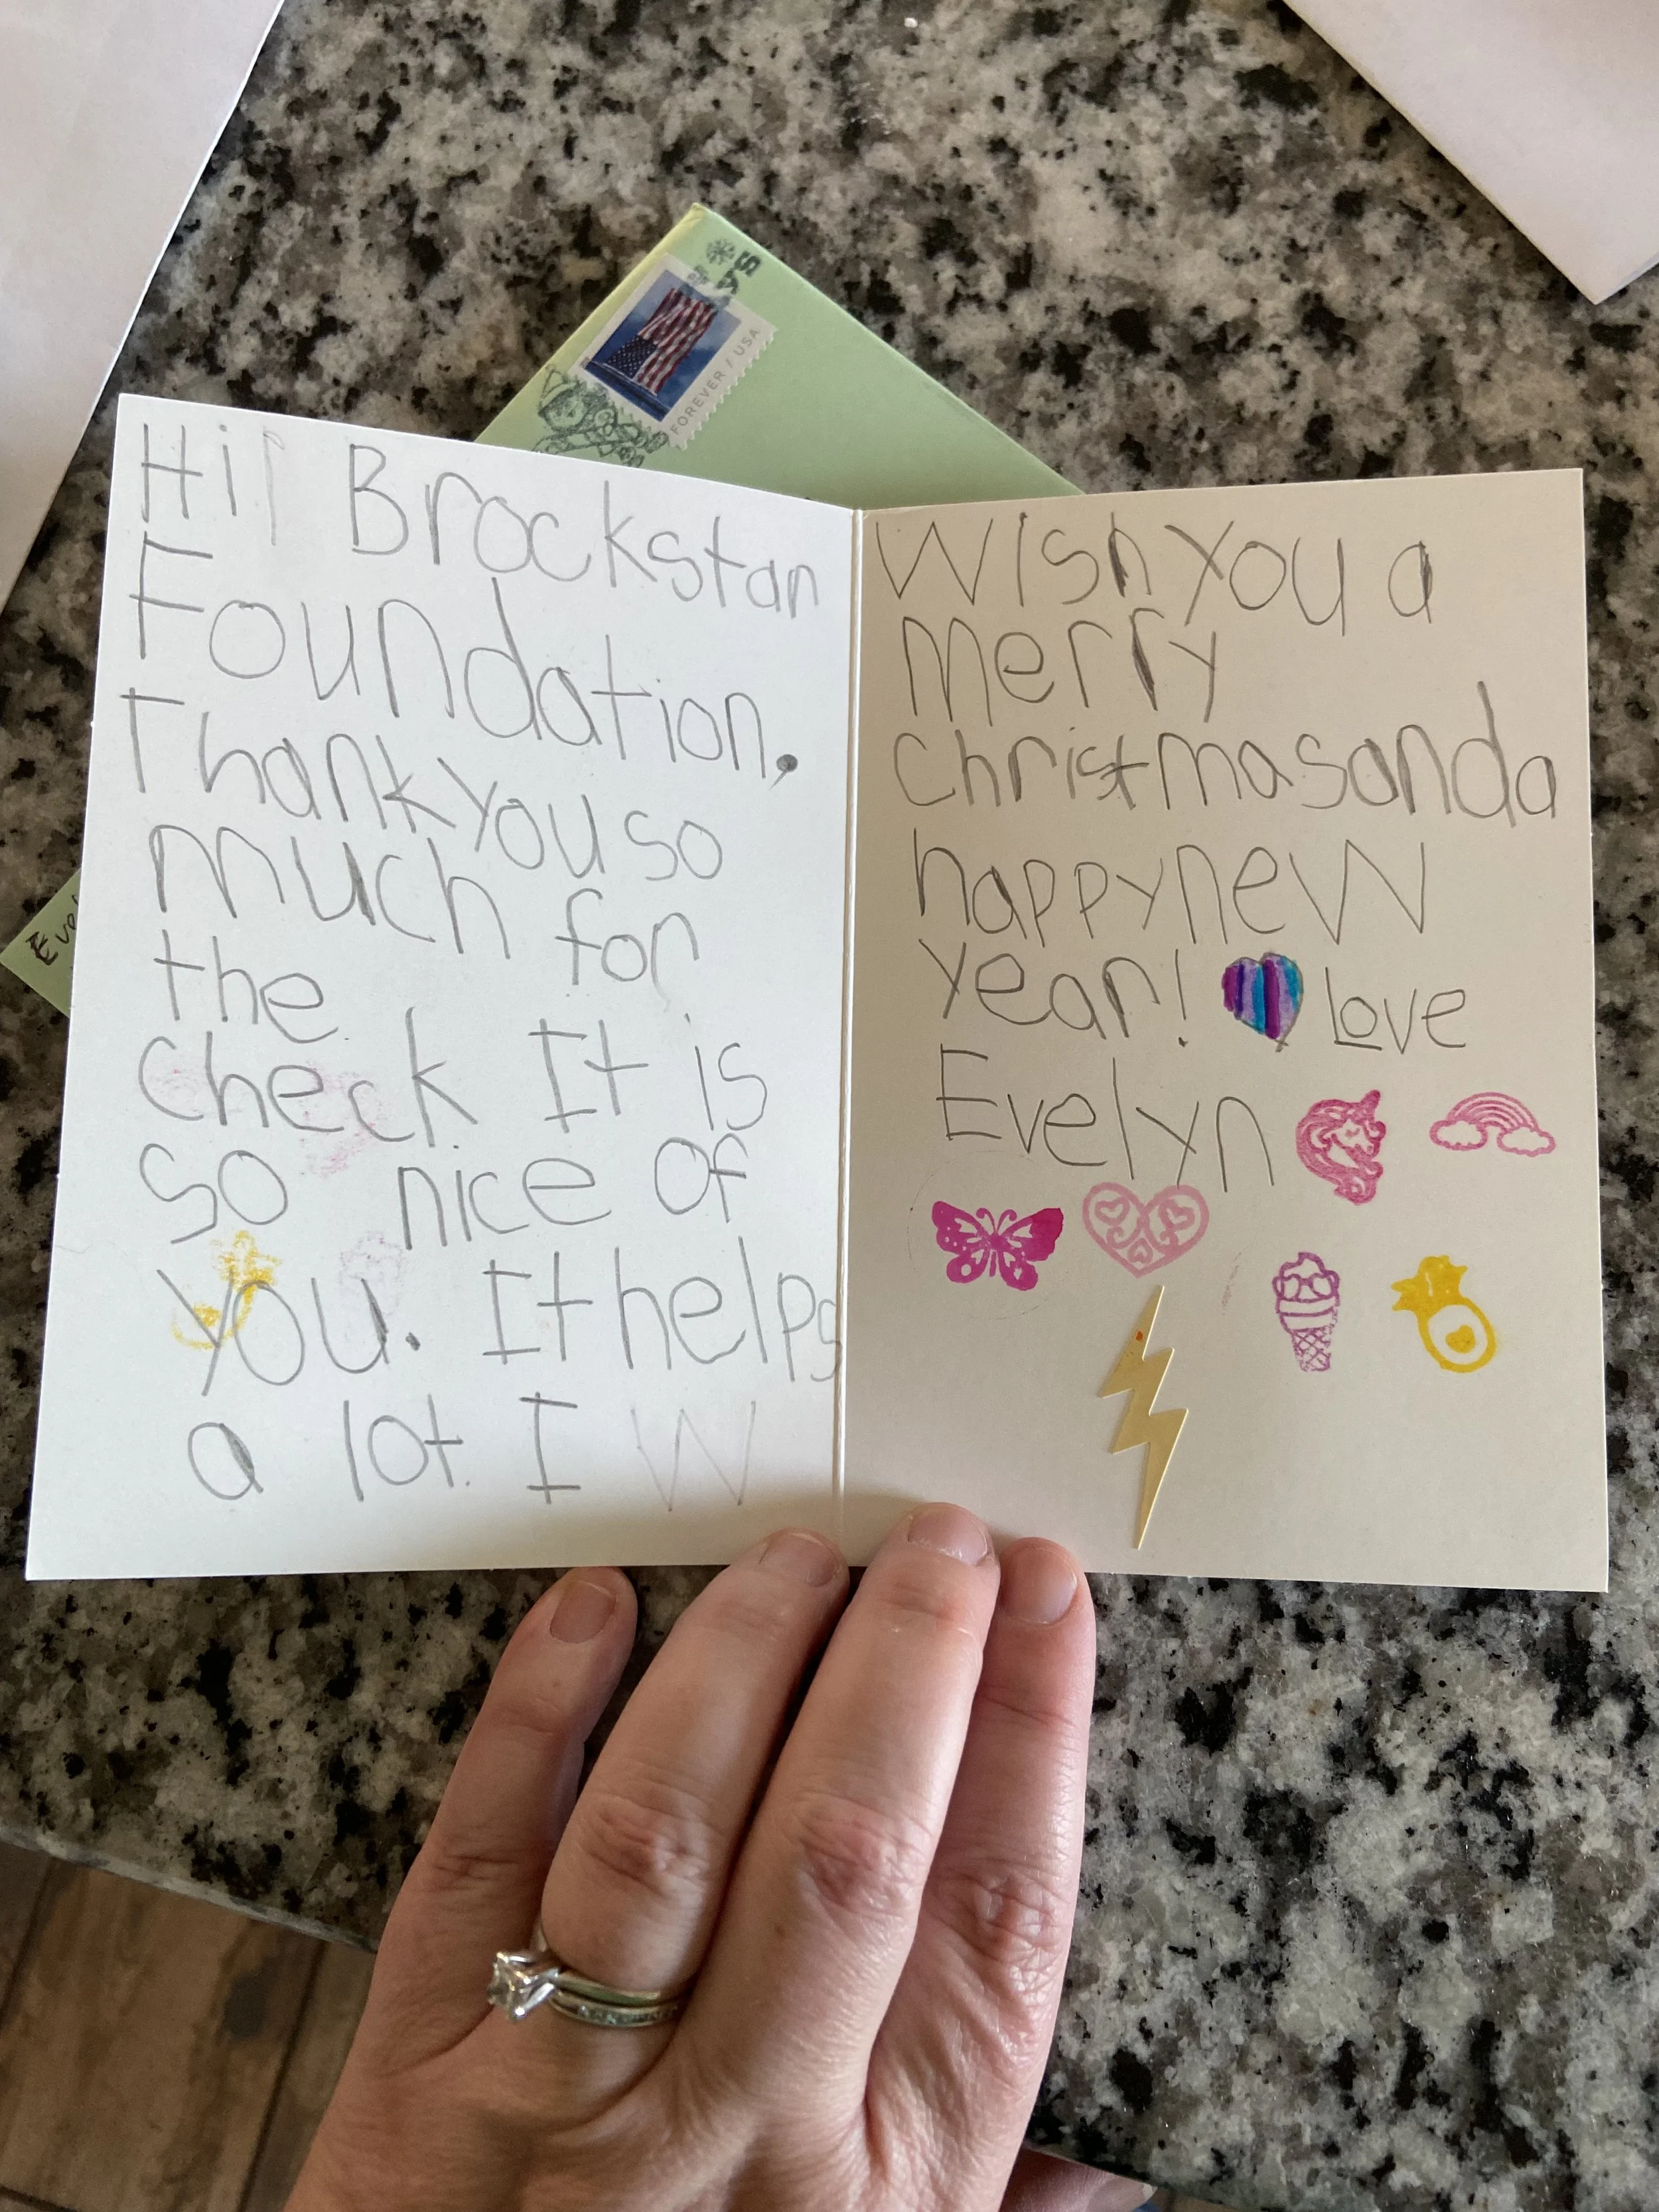 Hi! Brockstan
Foundation,
Thank you so
much for
the
check It is
so nice of
you. It helps
a lot. I W
Wish you a
Merry
christmas and a
happy new
year! Love
Evelyn
FOREVER / USA
Eve